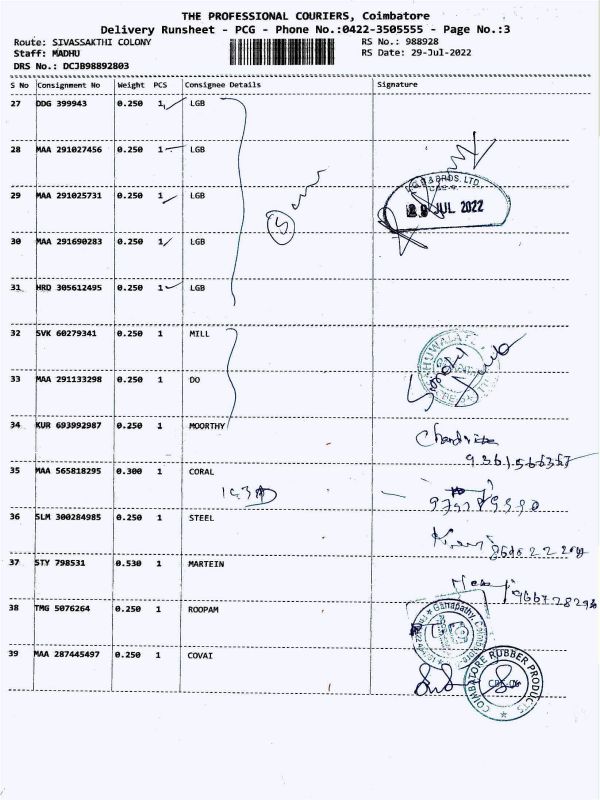 THE PROFESSIONAL COURIERS, Coimbatore
Delivery Runsheet - PCG - Phone No.:0422-3505555 - Page No.:3
Route: SIVASSAKTHI COLONY
RS No.: 988928
Staff: MADHU
RS Date: 29-Jul-2022
DRS No.: DCJB98892803
S No Consignment No Weight PCS Consignee Details Signature
27 DDG 399943 0.250 1 LGB
28 MAA 291027456 0.250 1 LGB
29 MAA 291025731 0.250 1 LGB
& BROS. LTD.
29 JUL 2022
30 MAA 291690283 0.250 1 LGB
31 HRD 305612495 0.250 1 LGB
32 SVK 60279341 0.250 1 MILL
33 MAA 291133298 0.250 1 DO
34 KUR 693992987 0.250 1 MOORTHY
35 MAA 565818295 0.300 1 CORAL
36 SLM 300284985 0.250 1 STEEL
37 STY 798531 0.530 1 MARTEIN
38 TMG 5076264 0.250 1 ROOPAM
Ganapathy, Coimbatore
39 MAA 287445497 0.250 1 COVAI
COIMBATORE RUBBER PRODUCTS